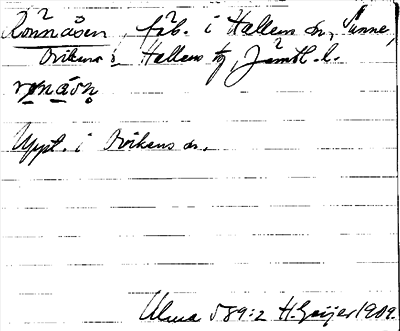 Rönnåsen, fäb. i Hallens sn, Sunne,
Ovikens o Hallens tg, Jämtl. l.
rønåsn̥
Uppt. i Ovikens sn.
Ulma 589:2 H. Geijer 1909.